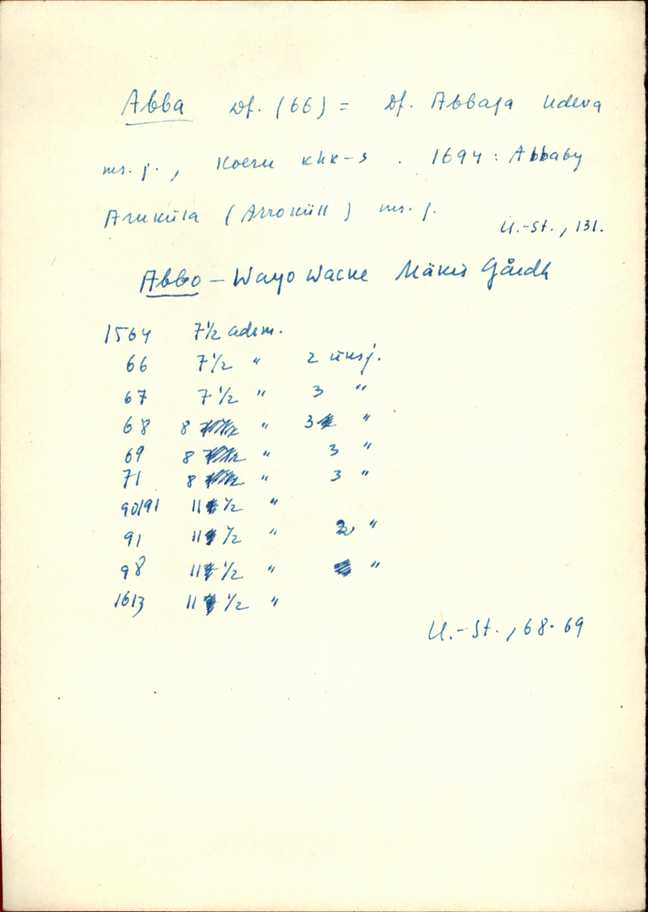 Abba Df. (66) = Df. Abbaja Udeva
ms. j., Koeru khk-s. 1694: Abbaby
Aruküla (Arroküll) ms. j.
U.-St., 131.
Abbo - Wayo Wacke Mäkis Gårdh
1564 7 1/2 adsm.
66 7 1/2 " 2 üksj.
67 7 1/2 " 3 "
68 8 " 3 "
69 8 " 3 "
71 8 " 3 "
90/91 11 1/2 "
91 11 1/2 " 2 "
98 11 1/2 " "
1613 11 1/2 "
U.-St., 68-69